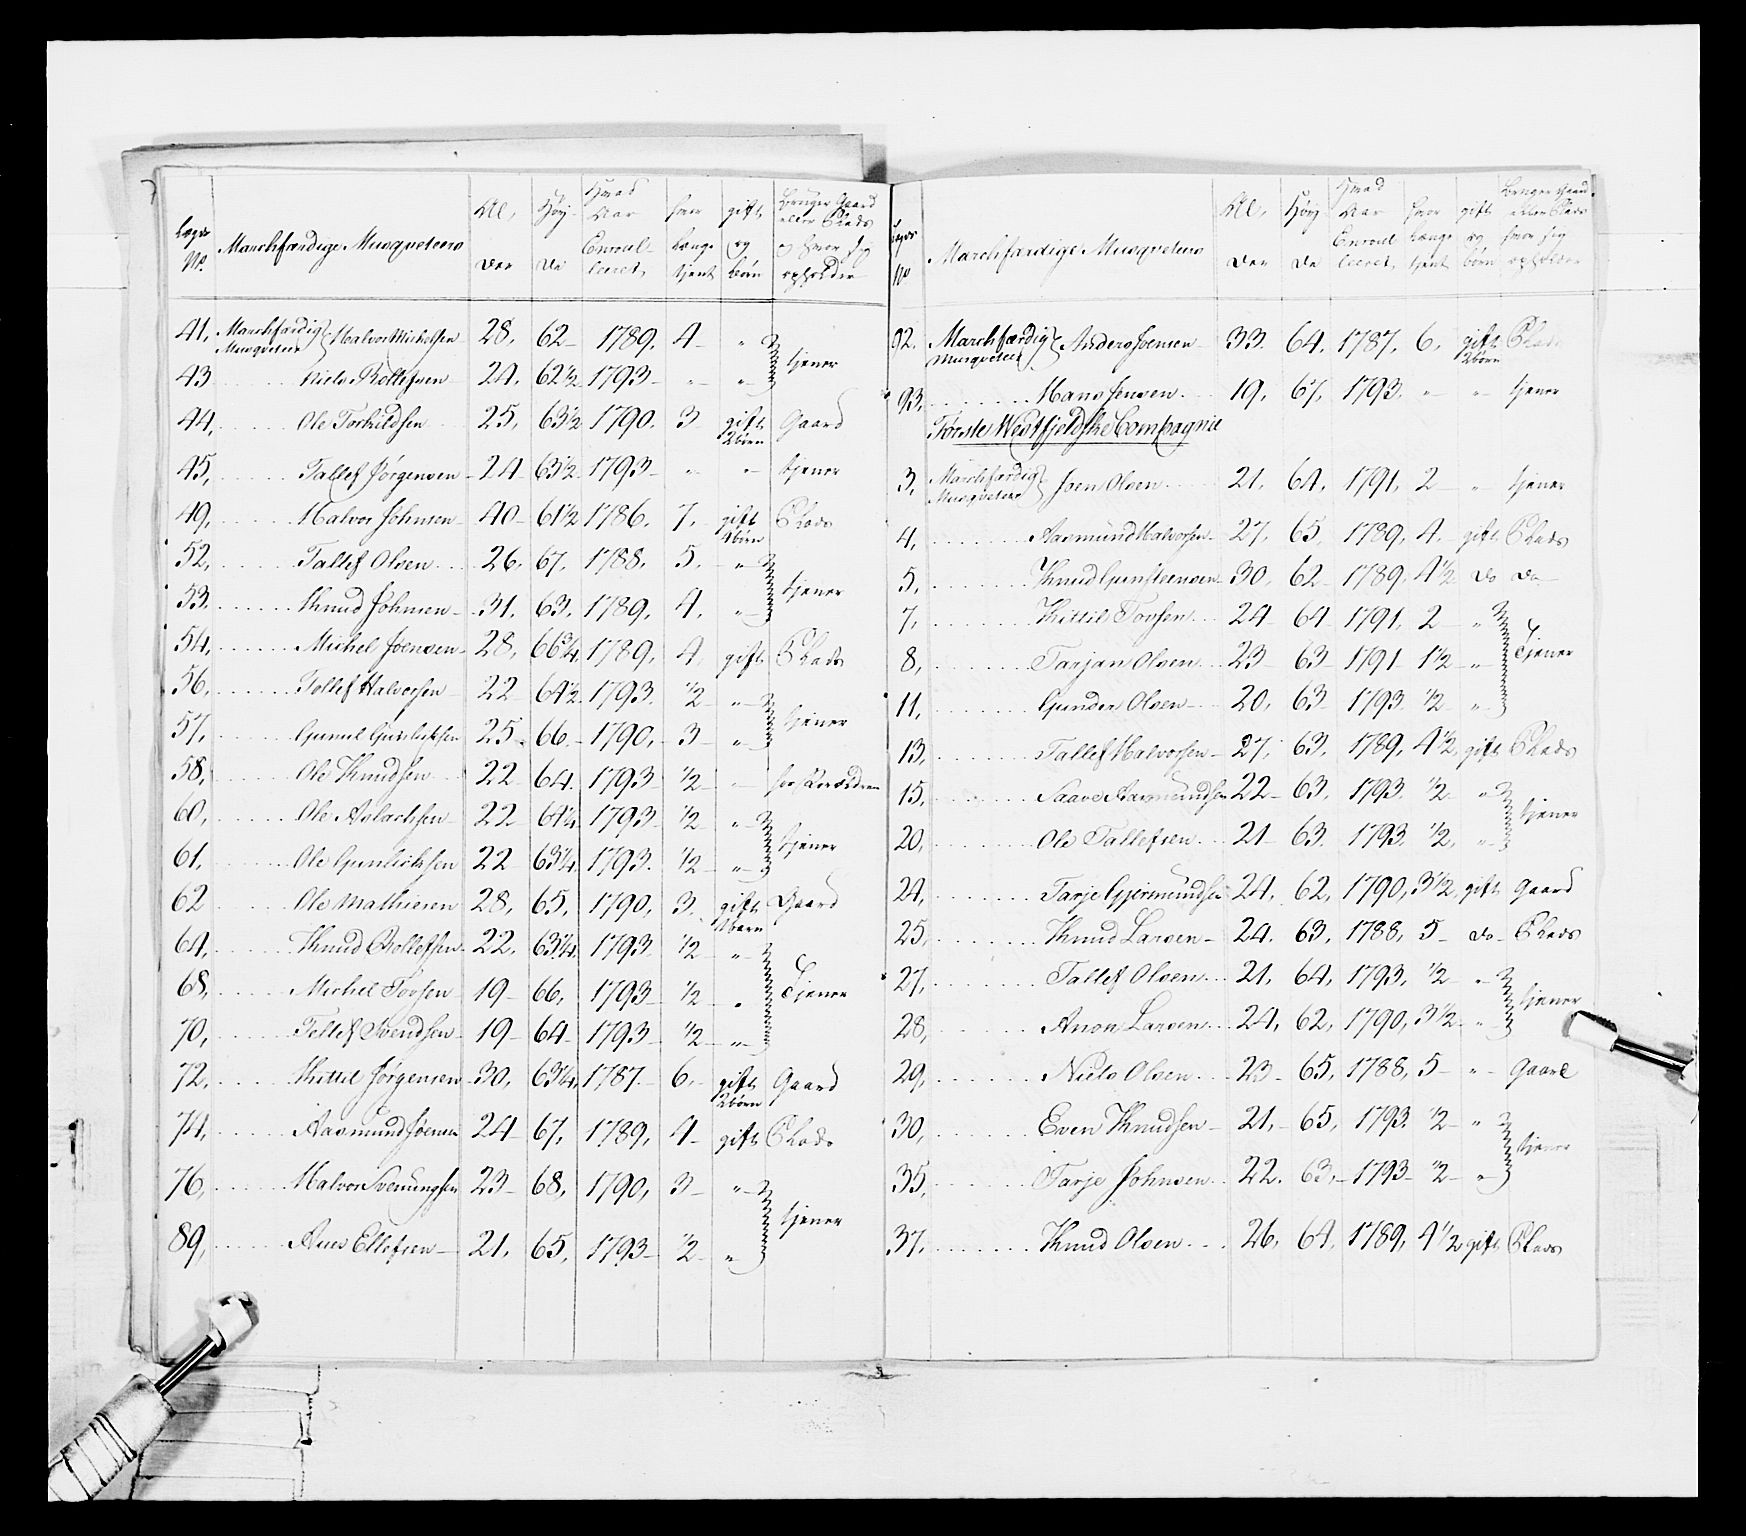 Lægs No. Marchfærdige Musqveteers Al, der Høy de Hvad Aar Enroul leeret, hvor længe tjent gift og børn Bruger Gaard eller Plads og hvor sig opholder
41, Marchfærdig Musqveteer Halvor Michelsen 28, 62 1789, 4 "
43 Niels Rollefsen 24, 62½ 1793 " " tjener
44, Ole Torkildsen 25, 63½ 1790, 3 gift 2 børn Gaard
45, Tallef Jørgensen 24 63½ 1793 " " tjener
49, Halvor Johnsen 40 61½ 1786, 7, gift 1 børn Plads
52, Tallef Olsen 26, 67, 1788, 5, "
53. Knud Johnsen 31, 63, 1789, 4, " tjener
54, Michel Joensen 28, 66¾, 1789, 4, gift Plads
56, Tollef Halvorsen 22 64½ 1793. ½ "
57, Gunul Gunleksen 25 66 1790, 3 " tjener
58, Ole Knudsen 22 64. 1793 ½ " hos Forældrene
60, Ole Aslachsen 22 64¼ 1793 ½ "
61, Ole Gunlichsen 22 63¼ 1793. ½ " tjener
62 Ole Mathiesen 28, 65, 1790, 3, gift 1 barn Gaard
64, Knud Rollefsen 22, 63¼ 1793 ½ "
68, Michel Tovsen 19 66, 1793 ½ " Tjener
70, Tellef Svendsen 19 64 1793 ½ "
72, Kittil Jørgensen 30, 63¼ 1787. 6, gift 2 børn Gaard
74, Aasmund Joensen 24 67, 1789, 4 gift Plads
76, Halvor Svenungsen 23 68, 1790, 3 "
89, Anes Ellefsen 21, 65, 1793 ½ " tjener
Lægs No Marchfærdige Musqveteers Al, der Høy de Hvad Aar Enroul leeret, hvor længe tjent gift og børn Bruger Gaard eller Plads hvor sig opholder
92. Marchfærdig Musqveteer Anders Svensen 33. 64. 1787, 6, gift 2 børn Plads
93, Hans Jensen 19, 67, 1793, " " tjener
Første Westfjeldske Compagnie
3, Marchfærdig Musqveteer Joen Olsen 21, 64, 1791, 2 " tjener
4, Aasmund Halvorsen 27, 65, 1789, 4, gift Plads
5, Knud Gunsteensen 30, 62 1789, 4½ do do
7, Kittil Tovsen 24 64 1791, 2 "
8, Tarjan Olsen 23 63 1791 1½ " Tjener
11, Gunder Olsen 20, 63 1793 ½ "
13, Tallef Halvorsen 27, 63, 1789, 4½, gift Plads
15, Saave Aasmundsen 22 63, 1793. ½ "
20, Ole Tallefsen 21 63. 1793. ½, " tjener
24, Tarje Gjermundsen 24, 62, 1790, 3½, gift Gaard
25, Knud Larsen 24, 63, 1788, 5 do Plads
27, Tallef Olsen 21, 64, 1793, ½ "
28, Anon Larsen 24, 62, 1790, 3½ " tjener
29, Niels Olsen 23 65, 1788, 5 " Gaard
30, Even Knudsen 21, 65, 1793. ½ "
35, Tarje Johnsen 22. 63, 1793 ½ " tjener
37, Knud Olsen 26, 64, 1789, 4½ gift Plads